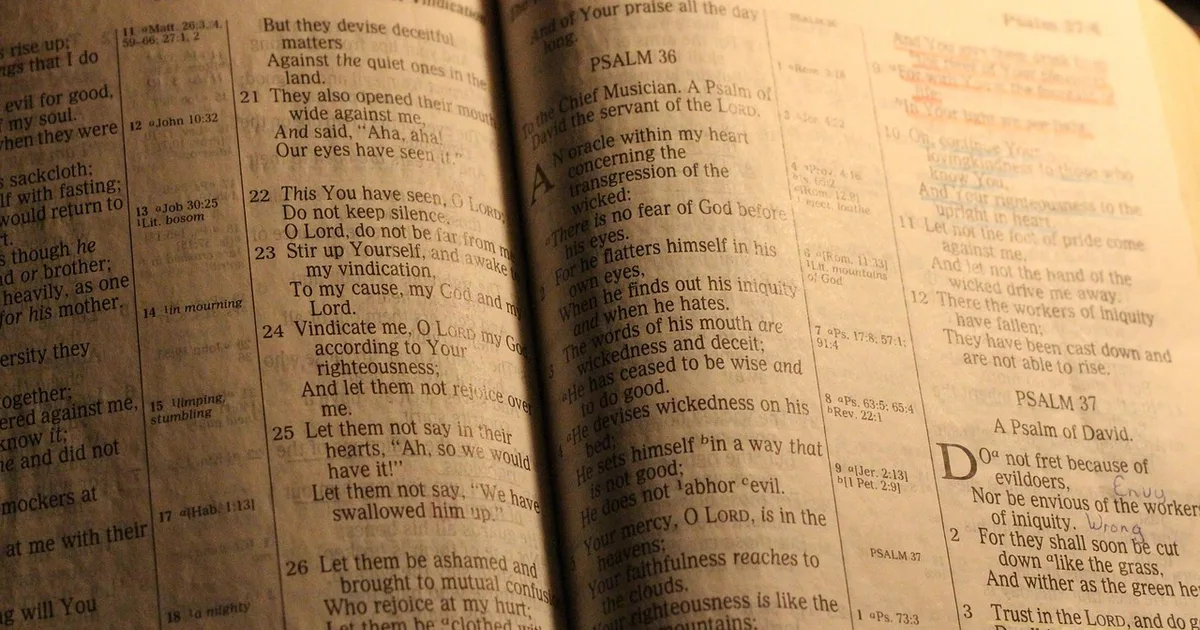 s rise up;
ngs that I do
evil for good,
f my soul.
when they were
s sackcloth:
lf with fasting;
would return to
rt.
s though he
nd or brother;
heavily, as one
for his mother.
ersity they
ogether;
ered against me,
know it;
ne and did not
mockers at
at me with their
ng will You
11 ᵃMatt. 26:3, 4,
59–66; 27:1, 2
12 ᵃJohn 10:32
13 ᵃJob 30:25
¹Lit. bosom
14 ¹in mourning
15 ¹limping,
stumbling
17 ᵃ[Hab. 1:13]
18 ¹a mighty
Vindication
But they devise deceitful
matters
Against the quiet ones in the
land.
21 They also opened their mouth
wide against me,
And said, "Aha, aha!
Our eyes have seen it."
22 This You have seen, O LORD;
Do not keep silence.
O Lord, do not be far from me
23 Stir up Yourself, and awake
my vindication,
To my cause, my God and my
Lord.
24 Vindicate me, O LORD my God
according to Your
righteousness;
And let them not rejoice over
me.
25 Let them not say in their
hearts, "Ah, so we would
have it!"
Let them not say, "We have
swallowed him up."
26 Let them be ashamed and
brought to mutual confus
Who rejoice at my hurt;
Let them be ᵃclothed with
And of Your praise all the day
long.
PSALM 36
To the Chief Musician. A Psalm of
David the servant of the LORD.
AN oracle within my heart
concerning the
transgression of the
wicked:
ᵃThere is no fear of God before
his eyes.
2 For he flatters himself in his
own eyes,
When he finds out his iniquity
and when he hates.
3 The words of his mouth are
wickedness and deceit;
ᵃHe has ceased to be wise and
to do good.
4 ᵃHe devises wickedness on his
bed;
He sets himself ᵇin a way that
is not good;
He does not ¹abhor ᶜevil.
5 Your mercy, O LORD, is in the
heavens;
Your faithfulness reaches to
the clouds.
righteousness is like the
mountains;
6 ᵃ[Rom. 11:33]
¹Lit. mountains
of God
7 ᵃPs. 17:8; 57:1;
91:4
8 ᵃPs. 63:5; 65:4
ᵇRev. 22:1
9 ᵃ[Jer. 2:13]
ᵇ[1 Pet. 2:9]
PSALM 37
1 ᵃPs. 73:3
Psalm 37:4
10 Oh, continue Your
lovingkindness to those who
know You,
And Your righteousness to the
upright in heart.
11 Let not the foot of pride come
against me,
And let not the hand of the
wicked drive me away.
12 There the workers of iniquity
have fallen;
They have been cast down and
are not able to rise.
PSALM 37
A Psalm of David.
DOᵃ not fret because of
evildoers,
Envy
Nor be envious of the workers
of iniquity. Wrong
2 For they shall soon be cut
down ᵃlike the grass,
And wither as the green he
3 Trust in the LORD, and do g